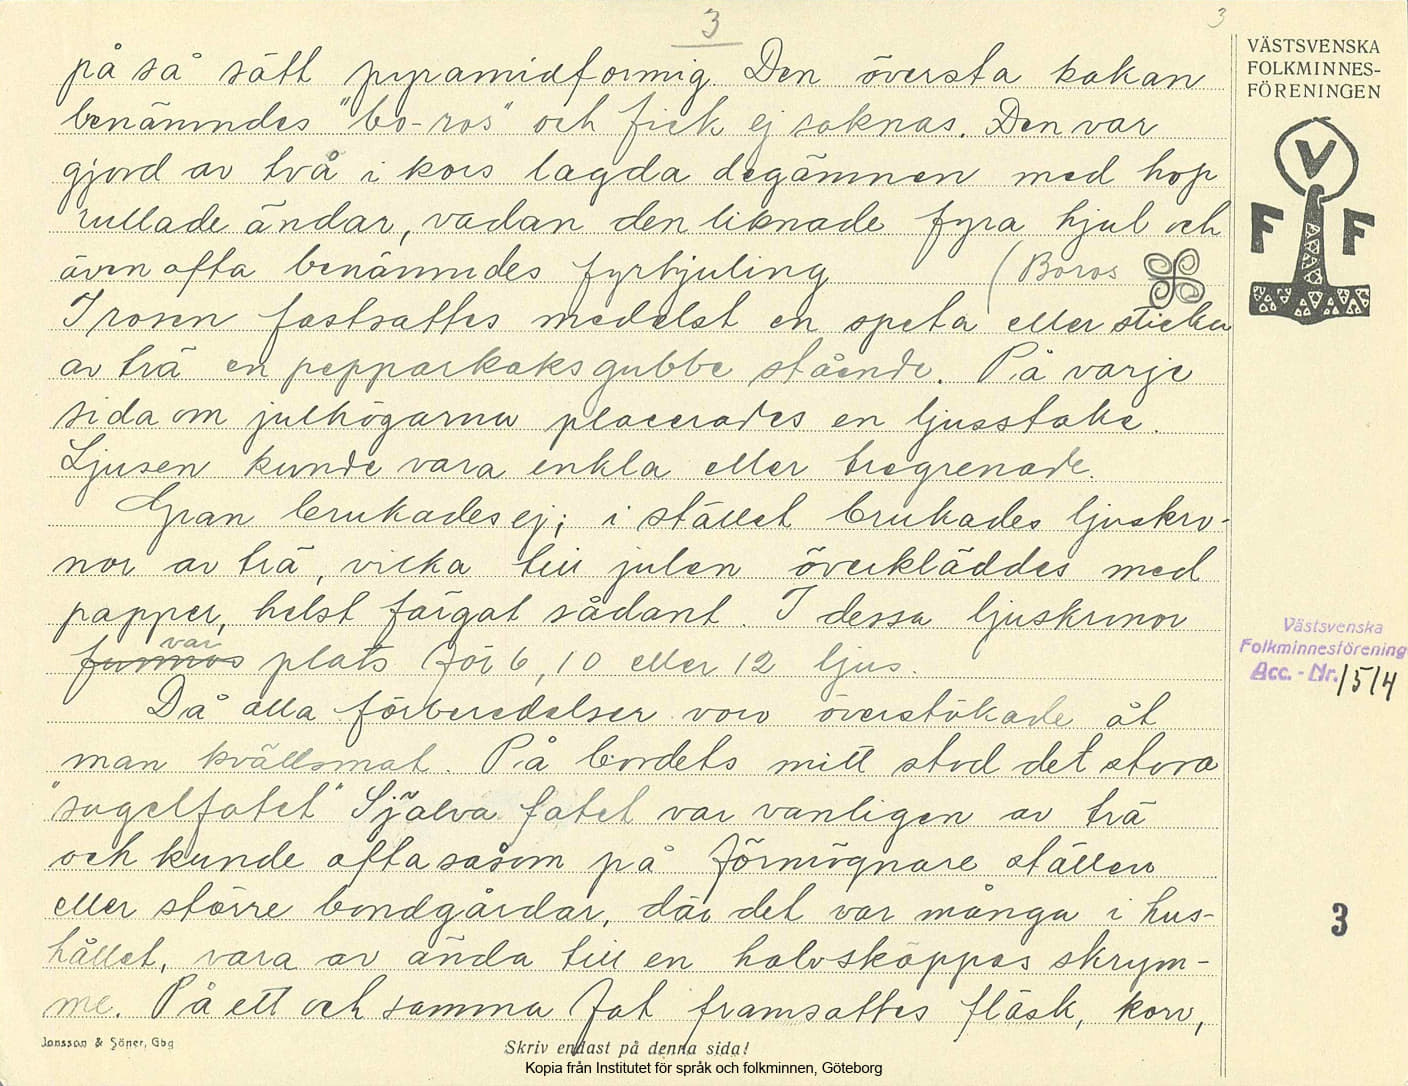 3
3
på så sätt pyramidformig. Den översta kakan
benämndes "bo-ros" och fick ej saknas. Den var
gjord av två i kors lagda degämnen med hop
rullade ändar, vadan den liknade fyra hjul och
även ofta benämndes fyrhjuling (Boros
I rosen fastsattes medelst en speta eller sticka
av trä en pepparkaksgubbe stående. På varje
sida om julhögarna placerades en ljusstake.
Ljusen kunde vara enkla eller tregrenade.
Gran brukades ej; i stället brukades ljuskro-
nor av trä, vilka till julen överkläddes med
papper, helst färgat sådant. I dessa ljuskronor
var
funnos plats för 6, 10 eller 12 ljus.
Då alla förberedelser voro överstökade åt
man kvällsmat. På bordets mitt stod det stora
"sugelfatet" Själva fatet var vanligen av trä
och kunde ofta såsom på förmögnare ställen
eller större bondgårdar, där det var många i hus-
hållet, vara av ända till en halvskäppas skrym-
me. På ett och samma fat framsattes fläsk, korv,
Jonsson & Söner, Gbg
Skriv endast på denna sida!
Kopia från Institutet för språk och folkminnen, Göteborg
VÄSTSVENSKA
FOLKMINNES-
FÖRENINGEN
V
F F
Västsvenska
Folkminnesförening
Acc. - Nr. 1514
3